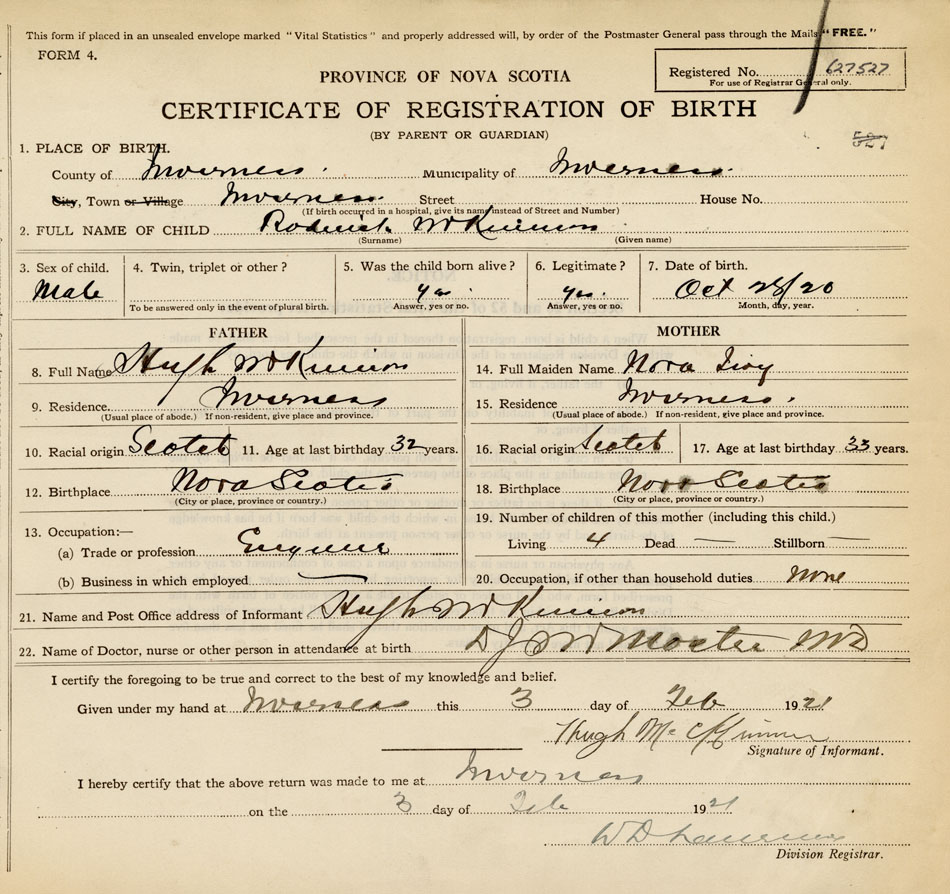 This form if placed in an unsealed envelope marked "Vital Statistics" and properly addressed will, by order of the Postmaster General pass through the Mails "FREE."
FORM 4.
PROVINCE OF NOVA SCOTIA
Registered No. 627527
For use of Registrar General only.
CERTIFICATE OF REGISTRATION OF BIRTH
(BY PARENT OR GUARDIAN)
527
1. PLACE OF BIRTH.
County of Inverness. Municipality of Inverness.
City, Town or Village Inverness. Street House No.
(If birth occurred in a hospital, give its name instead of Street and Number)
2. FULL NAME OF CHILD Roderick McKinnon
(Surname) (Given name)
3. Sex of child. 4. Twin, triplet or other? 5. Was the child born alive? 6. Legitimate? 7. Date of birth.
Male yes. yes. Oct 28/20
To be answered only in the event of plural birth. Answer, yes or no. Answer, yes or no. Month, day, year.
FATHER
8. Full Name Hugh McKinnon
9. Residence. Inverness
(Usual place of abode.) If non-resident, give place and province.
10. Racial origin Scotch 11. Age at last birthday 32 years.
12. Birthplace Nova Scotia
(City or place, province or country.)
13. Occupation:—
(a) Trade or profession Engineer
(b) Business in which employed —
MOTHER
14. Full Maiden Name Nora
15. Residence Inverness.
(Usual place of abode.) If non-resident, give place and province.
16. Racial origin Scotch 17. Age at last birthday 33 years.
18. Birthplace Nova Scotia
(City or place, province or country.)
19. Number of children of this mother (including this child.)
Living 4 Dead — Stillborn —
20. Occupation, if other than household duties none
21. Name and Post Office address of Informant Hugh McKinnon
22. Name of Doctor, nurse or other person in attendance at birth MD
I certify the foregoing to be true and correct to the best of my knowledge and belief.
Given under my hand at Inverness this 3 day of Feb 1921
Hugh McKinnon
Signature of Informant.
I hereby certify that the above return was made to me at Inverness
on the 3 day of Feb 1921
W D
Division Registrar.